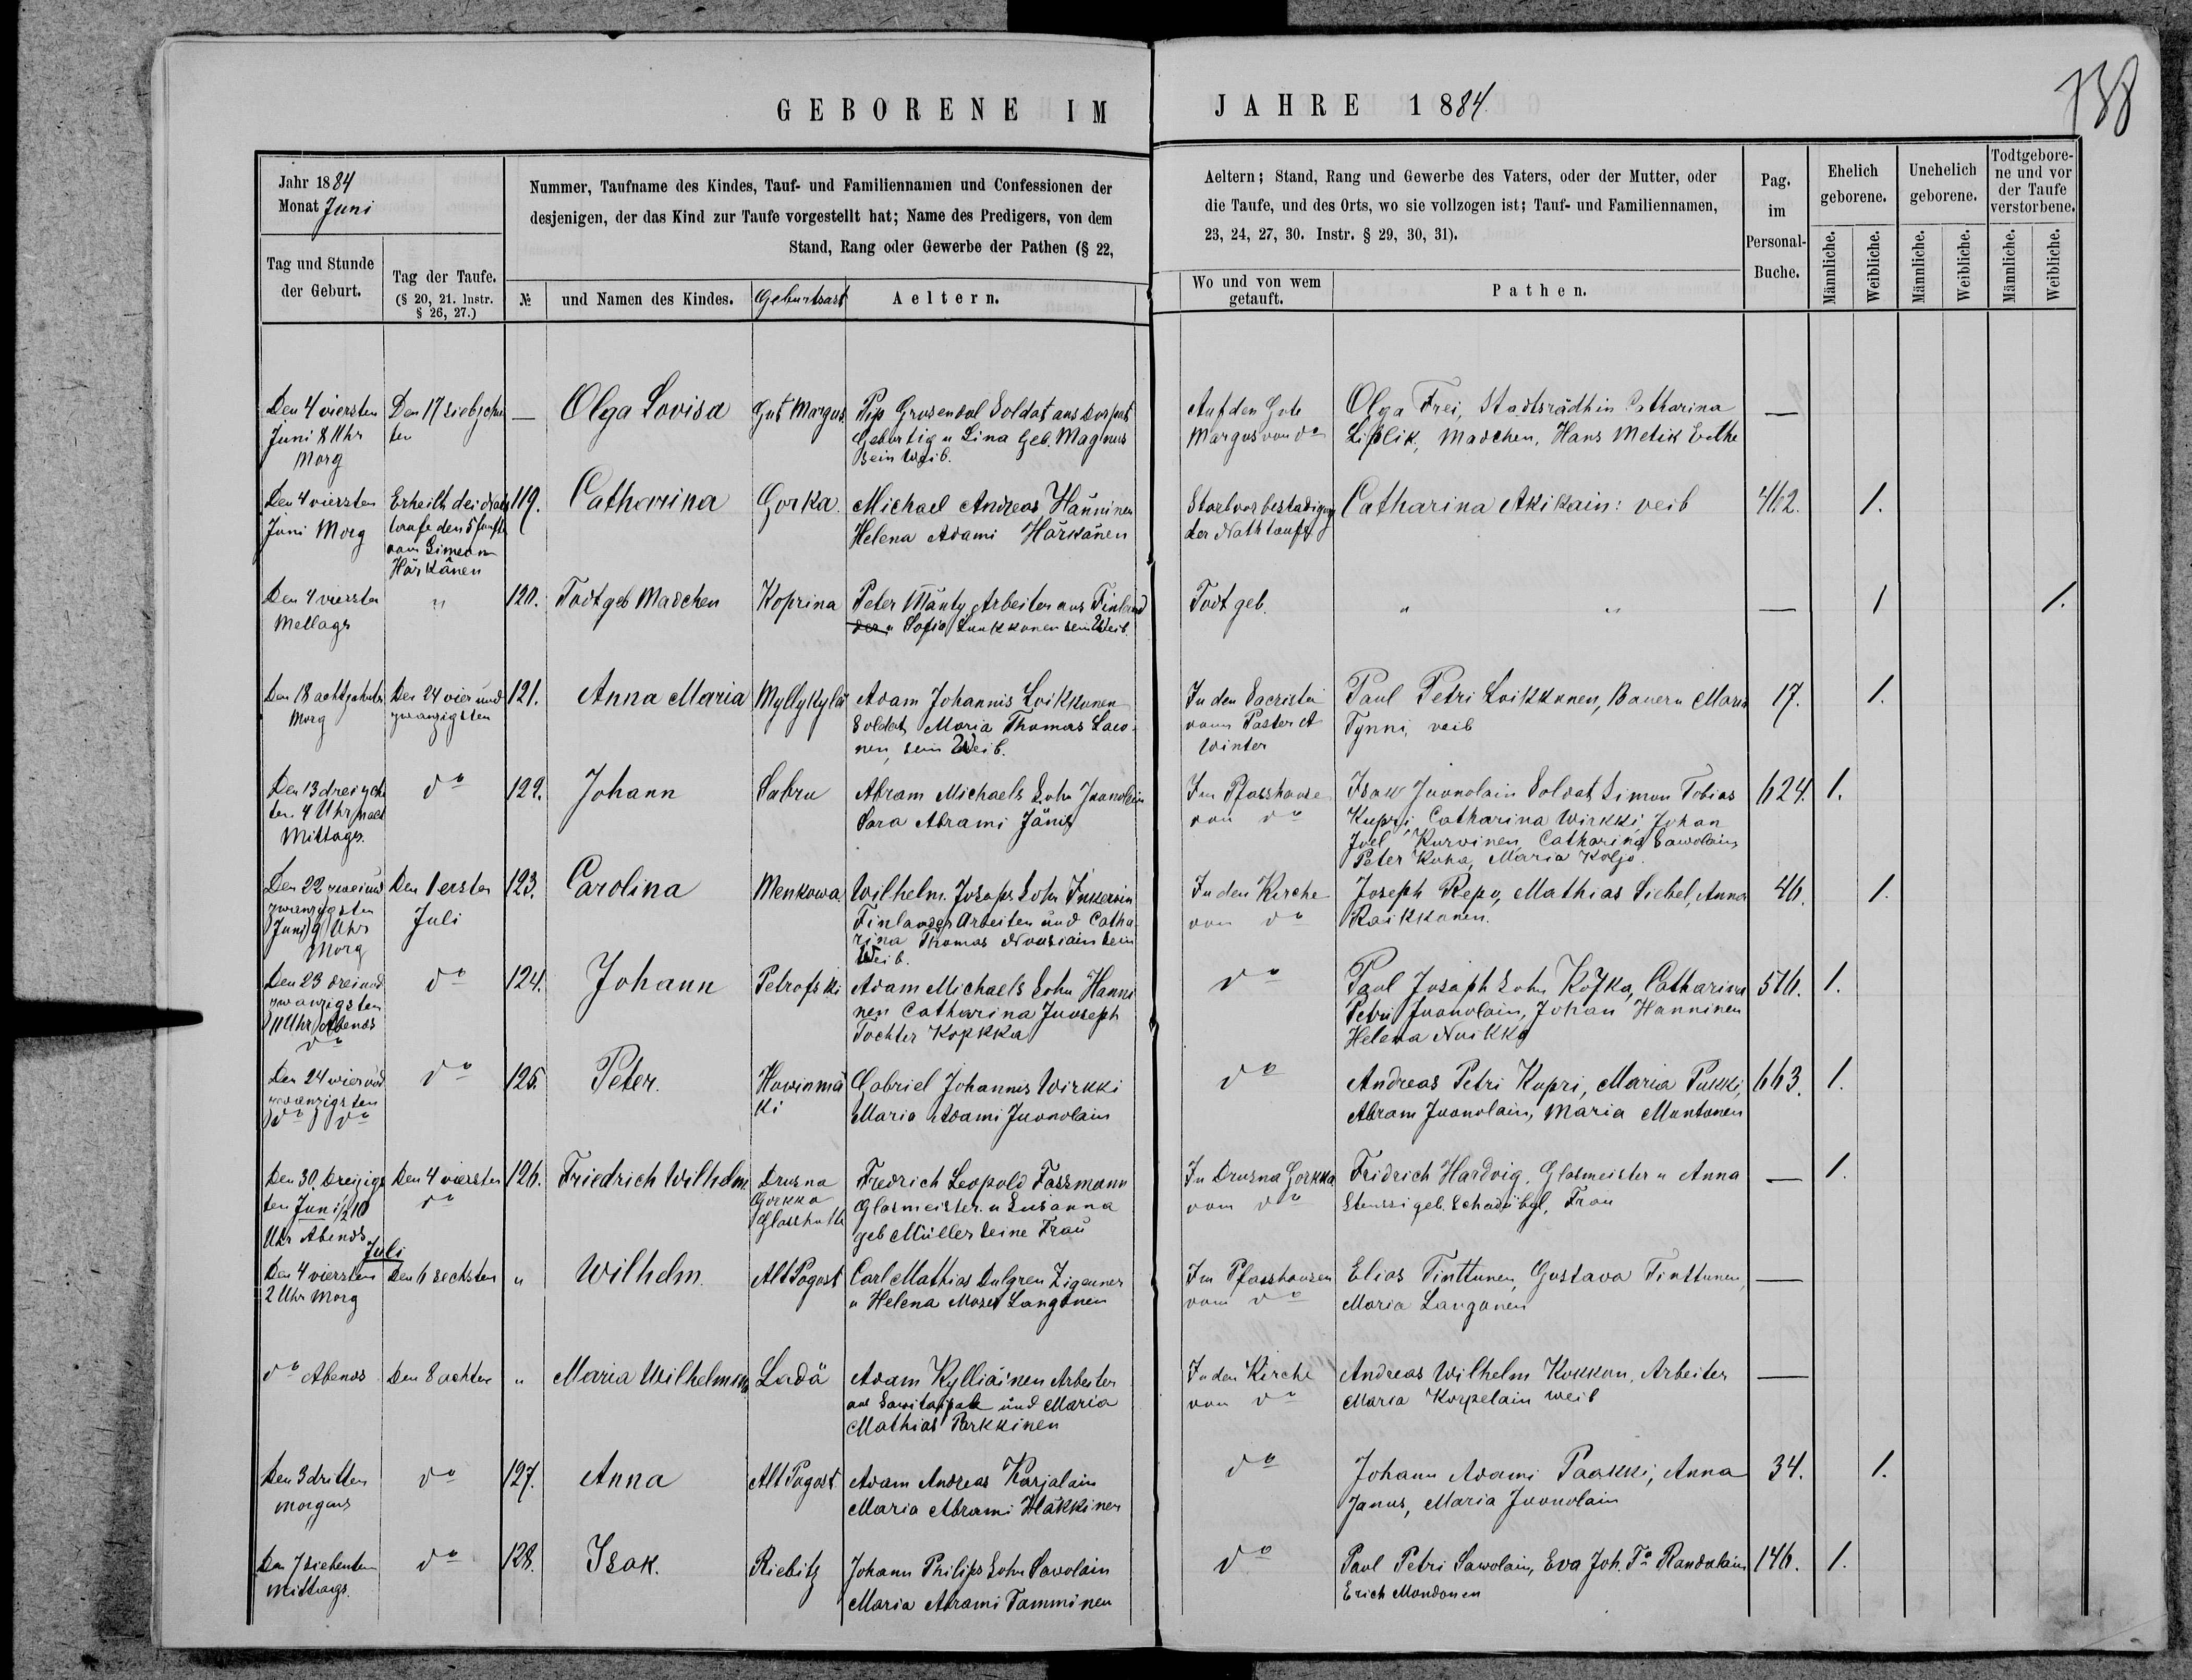 138
GEBORENE IM JAHRE 1884.
Jahr 1884
Monat Juni
Nummer, Taufname des Kindes, Tauf- und Familiennamen und Confessionen der
desjenigen, der das Kind zur Taufe vorgestellt hat; Name des Predigers, von dem
Stand, Rang oder Gewerbe der Pathen (§ 22,
Aeltern; Stand, Rang und Gewerbe des Vaters, oder der Mutter, oder
die Taufe, und des Orts, wo sie vollzogen ist; Tauf- und Familiennamen,
23, 24, 27, 30. Instr. § 29, 30, 31).
Pag.
im
Personal-
Buche.
Ehelich
geborene.
Unehelich
geborene.
Todtgebore-
ne und vor
der Taufe
verstorbene.
Tag und Stunde
der Geburt.
Tag der Taufe.
(§ 20, 21. Instr.
§ 26, 27.)
№
und Namen des Kindes.
Geburtsart
Aeltern.
Wo und von wem
getauft.
Pathen.
Männliche.
Weibliche.
Männliche.
Weibliche.
Männliche.
Weibliche.
Den 4 viersten
Juni 8 Uhr
Morg
Den 17 siebzehn
ten
—
Olga Lovisa
Gut Margus
Pip Grusendal Soldat aus Dorpat
Gebürtig u Lina Geb. Magnus
sein Weib.
Auf den Gute
Margus von do
Olga Frei, Stadtsrädhin Catharina
Liplik, Madchen, Hans Metik
—
Den 4 viersten
Juni Morg
taufe den 5
vom Simeon
Härkänen
119.
Catharina
Gorka.
Michael Andreas Hänninen
Helena Adami Härkänen
der Nathtaufe
Catharina Akikain: veib
462.
1.
Den 4 vierste
Mettags
"
120.
Todtgeb Madchen
Koprina
Peter Mänty Arbeiter aus Finland
der u Sofia Luukkonen sein Weib.
Todt geb.
" "
—
1
1.
Den 18 achtzehnten
Morg
Den 24 vier und
zwanzigsten
121.
Anna Maria
Myllykylä
Adam Johannis Loikkanen
Soldat, Maria Thomas Sawo-
nen, sein Weib.
In den Sacristei
vom Paster A
Winter
Paul Petri Loikkanen, Bauern Maria
Tynni veib
17.
1.
Den 13 dreizehn
ten. 4 Uhr nach
Mittags.
do
122.
Johann
Sabru
Abram Michaels Sohn Juanolain
Sara Abrami Jänis
Im Pfasshause
von do
Isak Juonolain Soldat Simon Tobias
Kupri, Catharina Wirkki, Johan
Joel Kurvinen, Catharina Sawolain
Peter Kuha, Maria Koljo.
624.
1.
Den 22 zweiund
zwanzigsten
Juni 9 Uhr
Morg
Den 1 ersten
Juli
123.
Carolina
Menkowa
Wilhelm Josephs Sohn Inkervin
Finlander Arbeiten und Catha
rina Thomas Nousiain sein
Weib.
In den Kirche
von do
Joseph Repo, Mathias Siebel, Anna
Raikkonen.
46.
1.
Den 23 dreiund
zwanzigsten
11 Uhr Abends
do
do
124.
Johann
Petrofski
Adam Michaels Sohn Hanni
nen Catharina Juoseph
Tochter Kopkka
do
Paul Josaph Sohn Kopka, Catharina
Petri Juonolain, Johan Hanninen
Helena Nuikka
516.
1.
Den 24 vierund
zwanzigsten
do do
do
125.
Peter.
Howinmä
ki
Gabriel Johannes Wirkki
Maria Adami Juonolain
do
Andreas Petri Kupri, Maria Pukki,
Abram Juonolain, Maria Muntonen
663.
1.
Den 30. Dreizigs
ten Juni 1/2 10
Uhr Abends
Den 4 viersten
do
126.
Friedrich Wilhelm
Drusna
Gorkka
Glasshutte
Fredrich Leopold Fassmann
Glasmeister. u Susanna
geb Müller seine Frau
In Drusna Gorkka
vom do
Fridrich Hardvig, Glasmeister u Anna
—
1.
Juli
Den 4 viersten
2 Uhr Morg
Den 6 sechsten
"
Wilhelm
Alt Pogost
Carl Mathias Dulgren Zigeuner
u Helena Moses Langonen
Im Pfasshausen
vom do
Elias Tinttunen, Gustava Tinttunen,
Maria Langonen
—
do Abends
Den 8 achten
"
Maria Wilhelmina
Ladä
Adam Kylliäinen Arbeiter
aus Sawitaipale und Maria
Mathias Parkkinen
In den Kirche
von do
Andreas Wilhelm Kokkon, Arbeiter
Maria Korpelain weib
—
Den 3 dritten
morgens
do
127.
Anna
Alt Pogost
Adam Andreas Karjalain
Maria Abrami Häkkinen
do
Johann Adami Paakki, Anna
Janus, Maria Juonolain
34.
1.
Den 7 siebenten
Mittags.
do
128.
Isak.
Riebitz
Johann Philips Sohn Savolain
Maria Abrami Tamminen
do
Paul Petri Sawolain, Eva Joh. To Randalain
Erich Mondonen
146.
1.